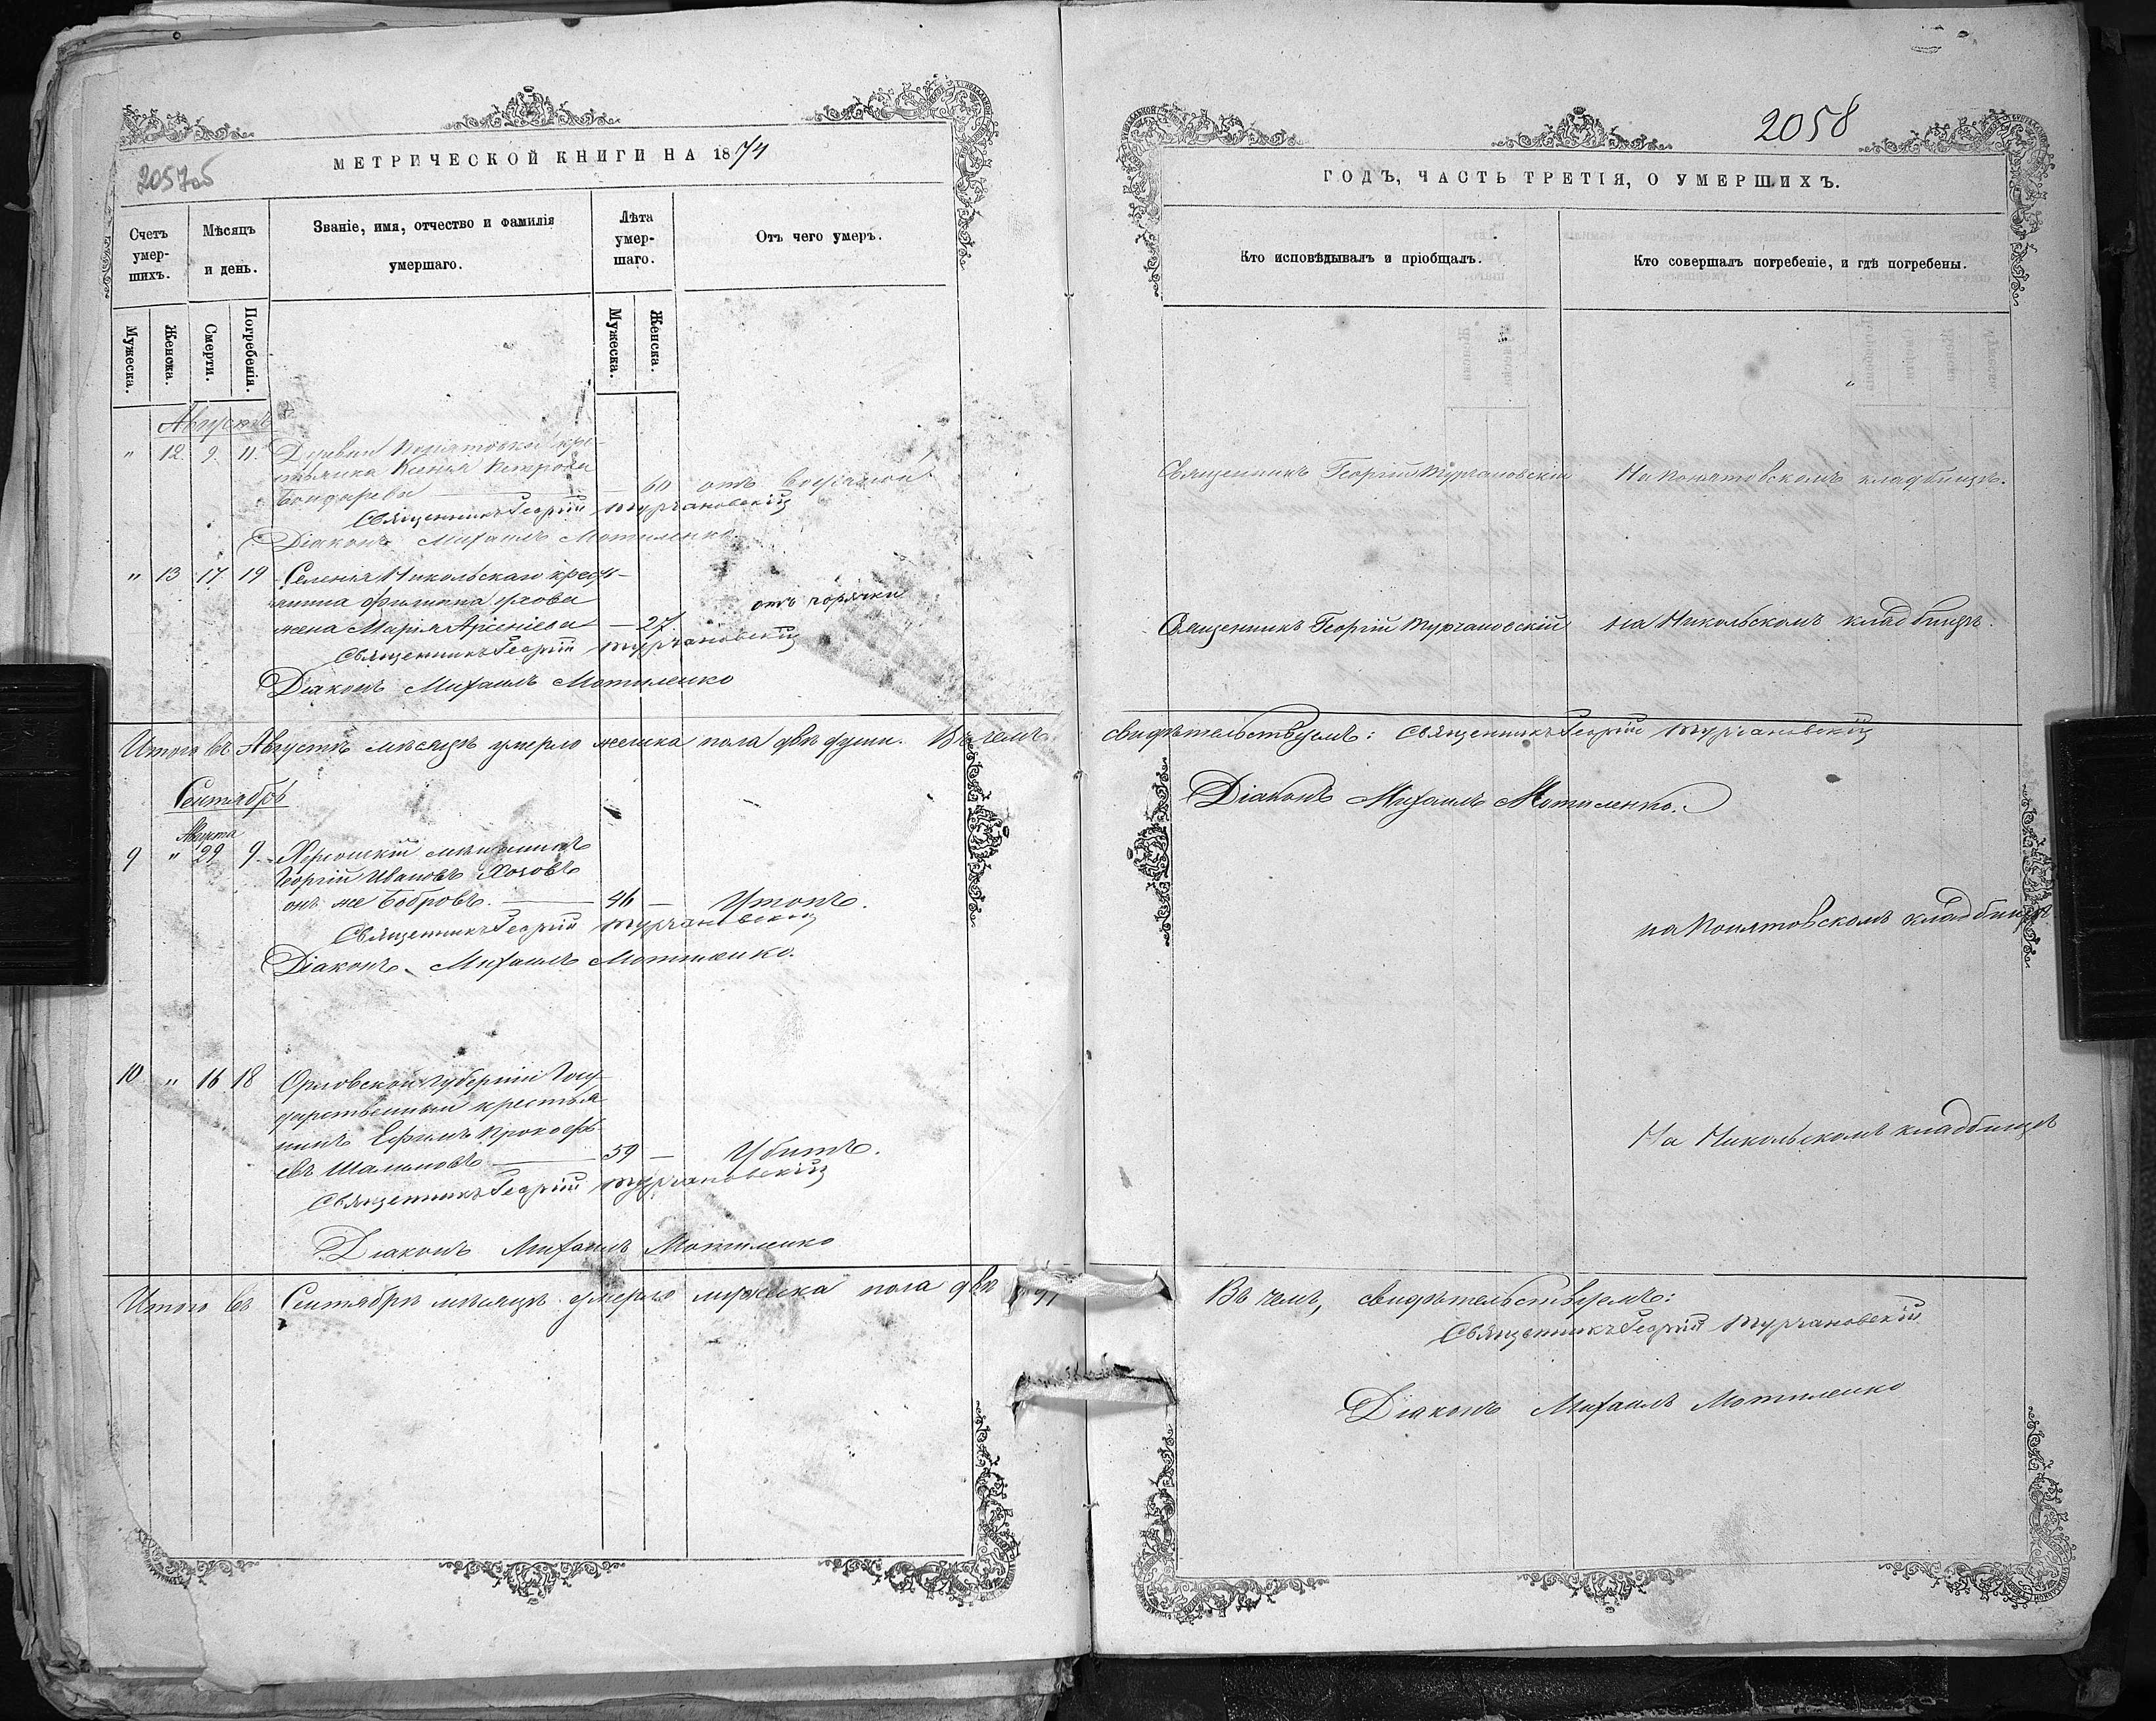 2057об
МЕТРИЧЕСКОЙ КНИГИ НА 1874
Счетъ умер-шихъ.
Мѣсяцъ и день.
Званіе, имя, отчество и фамилія умершаго.
Лѣта умер-шаго.
Отъ чего умеръ.
Мужеска.
Женска.
Смерти.
Погребенія.
Мужеска.
Женска.
Августъ
" 12. 9. 11. Деревни Понятовки кре-
стьянка Ксенія Петрова
Бондарева — 60 отъ
Священникъ Георгій Турчановскій
Діаконъ Михаилъ Мотиленко.
" 13 17. 19 Селенія Никольскаго крест-
янина Филипа
жена Марія Арсеніева — 27. отъ горячки
Священникъ Георгій Турчановскій
Діаконъ Михаилъ Мотиленко
Итого въ Августѣ мѣсяцѣ умерло женска пола двѣ души. Въ чемъ
Сентябрь
Августа
9 " 29 9. Херсонскій мѣщанинъ
Георгій Ивановъ
онъ же Бобровъ. — 46 — Утопъ.
Священникъ Георгій Турчановскій
Діаконъ Михаилъ Мотиленко.
10. " 16 18 Орловской Губерніи Госу-
дарственный крестья
нинъ Ефимъ Прокофь-
евъ — 59 — Убитъ.
Священникъ Георгій Турчановскій
Діаконъ Михаилъ Мотиленко
Итого въ Сентябрѣ мѣсяцѣ умерло мужеска пола двѣ
2058
ГОДЪ, ЧАСТЬ ТРЕТІЯ, О УМЕРШИХЪ.
Кто исповѣдывалъ и пріобщалъ.
Кто совершалъ погребеніе, и гдѣ погребены.
Священникъ Георгій Турчановскій На Понятовскомъ кладбищѣ.
Священникъ Георгій Турчановскій на Никольскомъ кладбищѣ.
свидѣтельствуемъ: Священникъ Георгій Турчановскій
Діаконъ Михаилъ Мотиленко.
на Понятовскомъ кладбищѣ
На Никольскомъ кладбищѣ
Въ чемъ, свидѣтельствуемъ:
Священникъ Георгій Турчановскій
Діаконъ Михаилъ Мотиленко